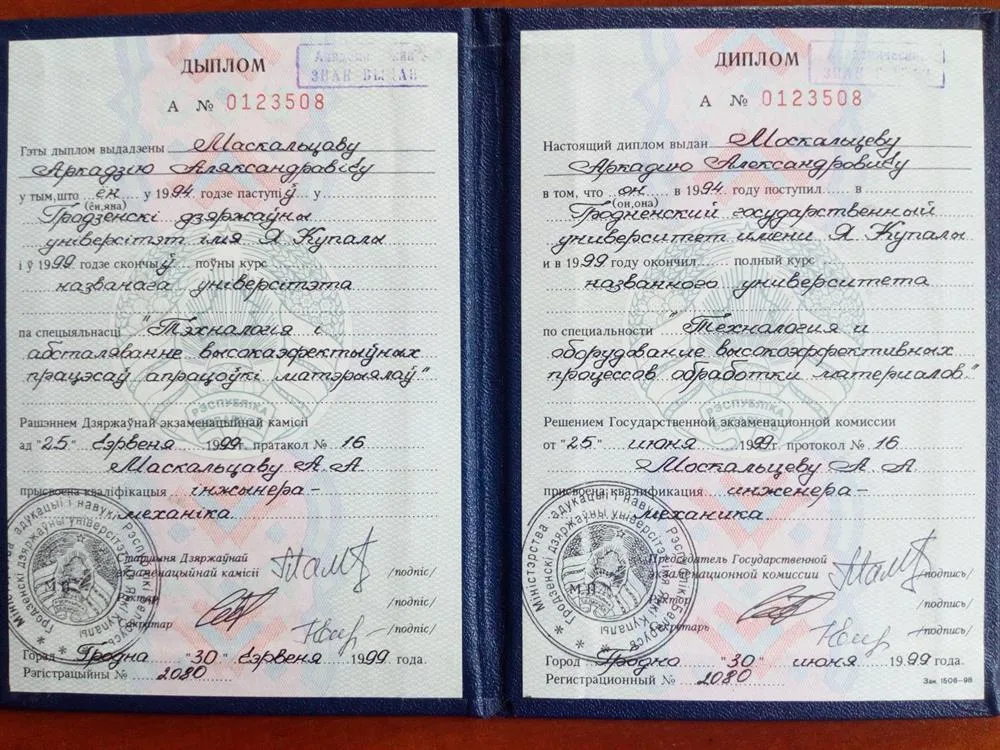 ДЫПЛОМ
ЗНАК ВЫДАН
А № 0123508
Гэты дыплом выдадзены Маскальцаву
Аркадзію Аляксандравічу
у тым, што ён у 1994 годзе паступіў у
(ён, яна)
Гродзенскі дзяржаўны
універсітэт імя Я Купалы
і ў 1999 годзе скончыў поўны курс
названага універсітэта
па спецыяльнасці "Тэхналогія і
абсталяванне высокаэфектыўных
працэсаў апрацоўкі матэрыялаў"
Рашэннем Дзяржаўнай экзаменацыйнай камісіі
ад "25" чэрвеня 1999г. пратакол № 16
Маскальцаву А. А
прысвоена кваліфікацыя інжынера-
механіка.
Старшыня Дзяржаўнай
экзаменацыйнай камісіі /подпіс/
Рэктар /подпіс/
Сакратар /подпіс/
М.П.
Горад Гродна "30" чэрвеня 1999 года.
Рэгістрацыйны № 2080
ДИПЛОМ
А № 0123508
Настоящий диплом выдан Москальцеву
Аркадию Александровичу
в том, что он в 1994 году поступил в
(он, она)
Гродненский государственный
университет имени Я Купалы
и в 1999 году окончил полный курс
названного университета
по специальности "Технология и
оборудование высокоэффективных
процессов обработки материалов"
РЭСПУБЛІКА
Решением Государственной экзаменационной комиссии
от "25" июня 1999г. протокол № 16
Москальцеву А. А.
присвоена квалификация инженера-
механика.
Міністэрства адукацыі і навукі Рэспублікі Беларусь
Гродзенскі дзяржаўны універсітэт імя Янкі Купалы
Председатель Государственной
экзаменационной комиссии /подпись/
Ректор /подпись/
Секретарь /подпись/
М.П.
Город Гродна "30" июня 1999 года.
Регистрационный № 2080
Зак. 1506-98